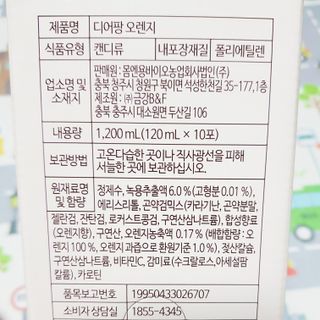 제품명 디어팡 오렌지
식품유형 캔디류 내포장재질 폴리에틸렌
업소명 및 소재지
판매원 : 몸엔용바이오농업회사법인(주)
충북 청주시 청원구 북이면 석성한천길 35-177,1층
제조원 : ㈜ 금강B&F
충북 충주시 대소원면 두산길 106
내용량 1,200 mL (120 mL × 10포)
보관방법 고온다습한 곳이나 직사광선을 피해
서늘한 곳에 보관하십시오.
원재료명 및 함량
정제수, 녹용추출액 6.0 % (고형분 0.01 %),
에리스리톨, 곤약겔믹스 (카라기난, 곤약분말,
젤란검, 잔탄검, 로커스트콩검, 구연산삼나트륨), 합성향료
(오렌지향), 구연산, 오렌지농축액 0.17 % (배합함량 : 오
렌지 100 %, 오렌지 과즙으로 환원기준 1.0 %), 젖산칼슘,
구연산삼나트륨, 비타민C, 감미료(수크랄로스,아세설팜
칼륨), 카로틴
품목보고번호 19950433026707
소비자 상담실 1855-4345